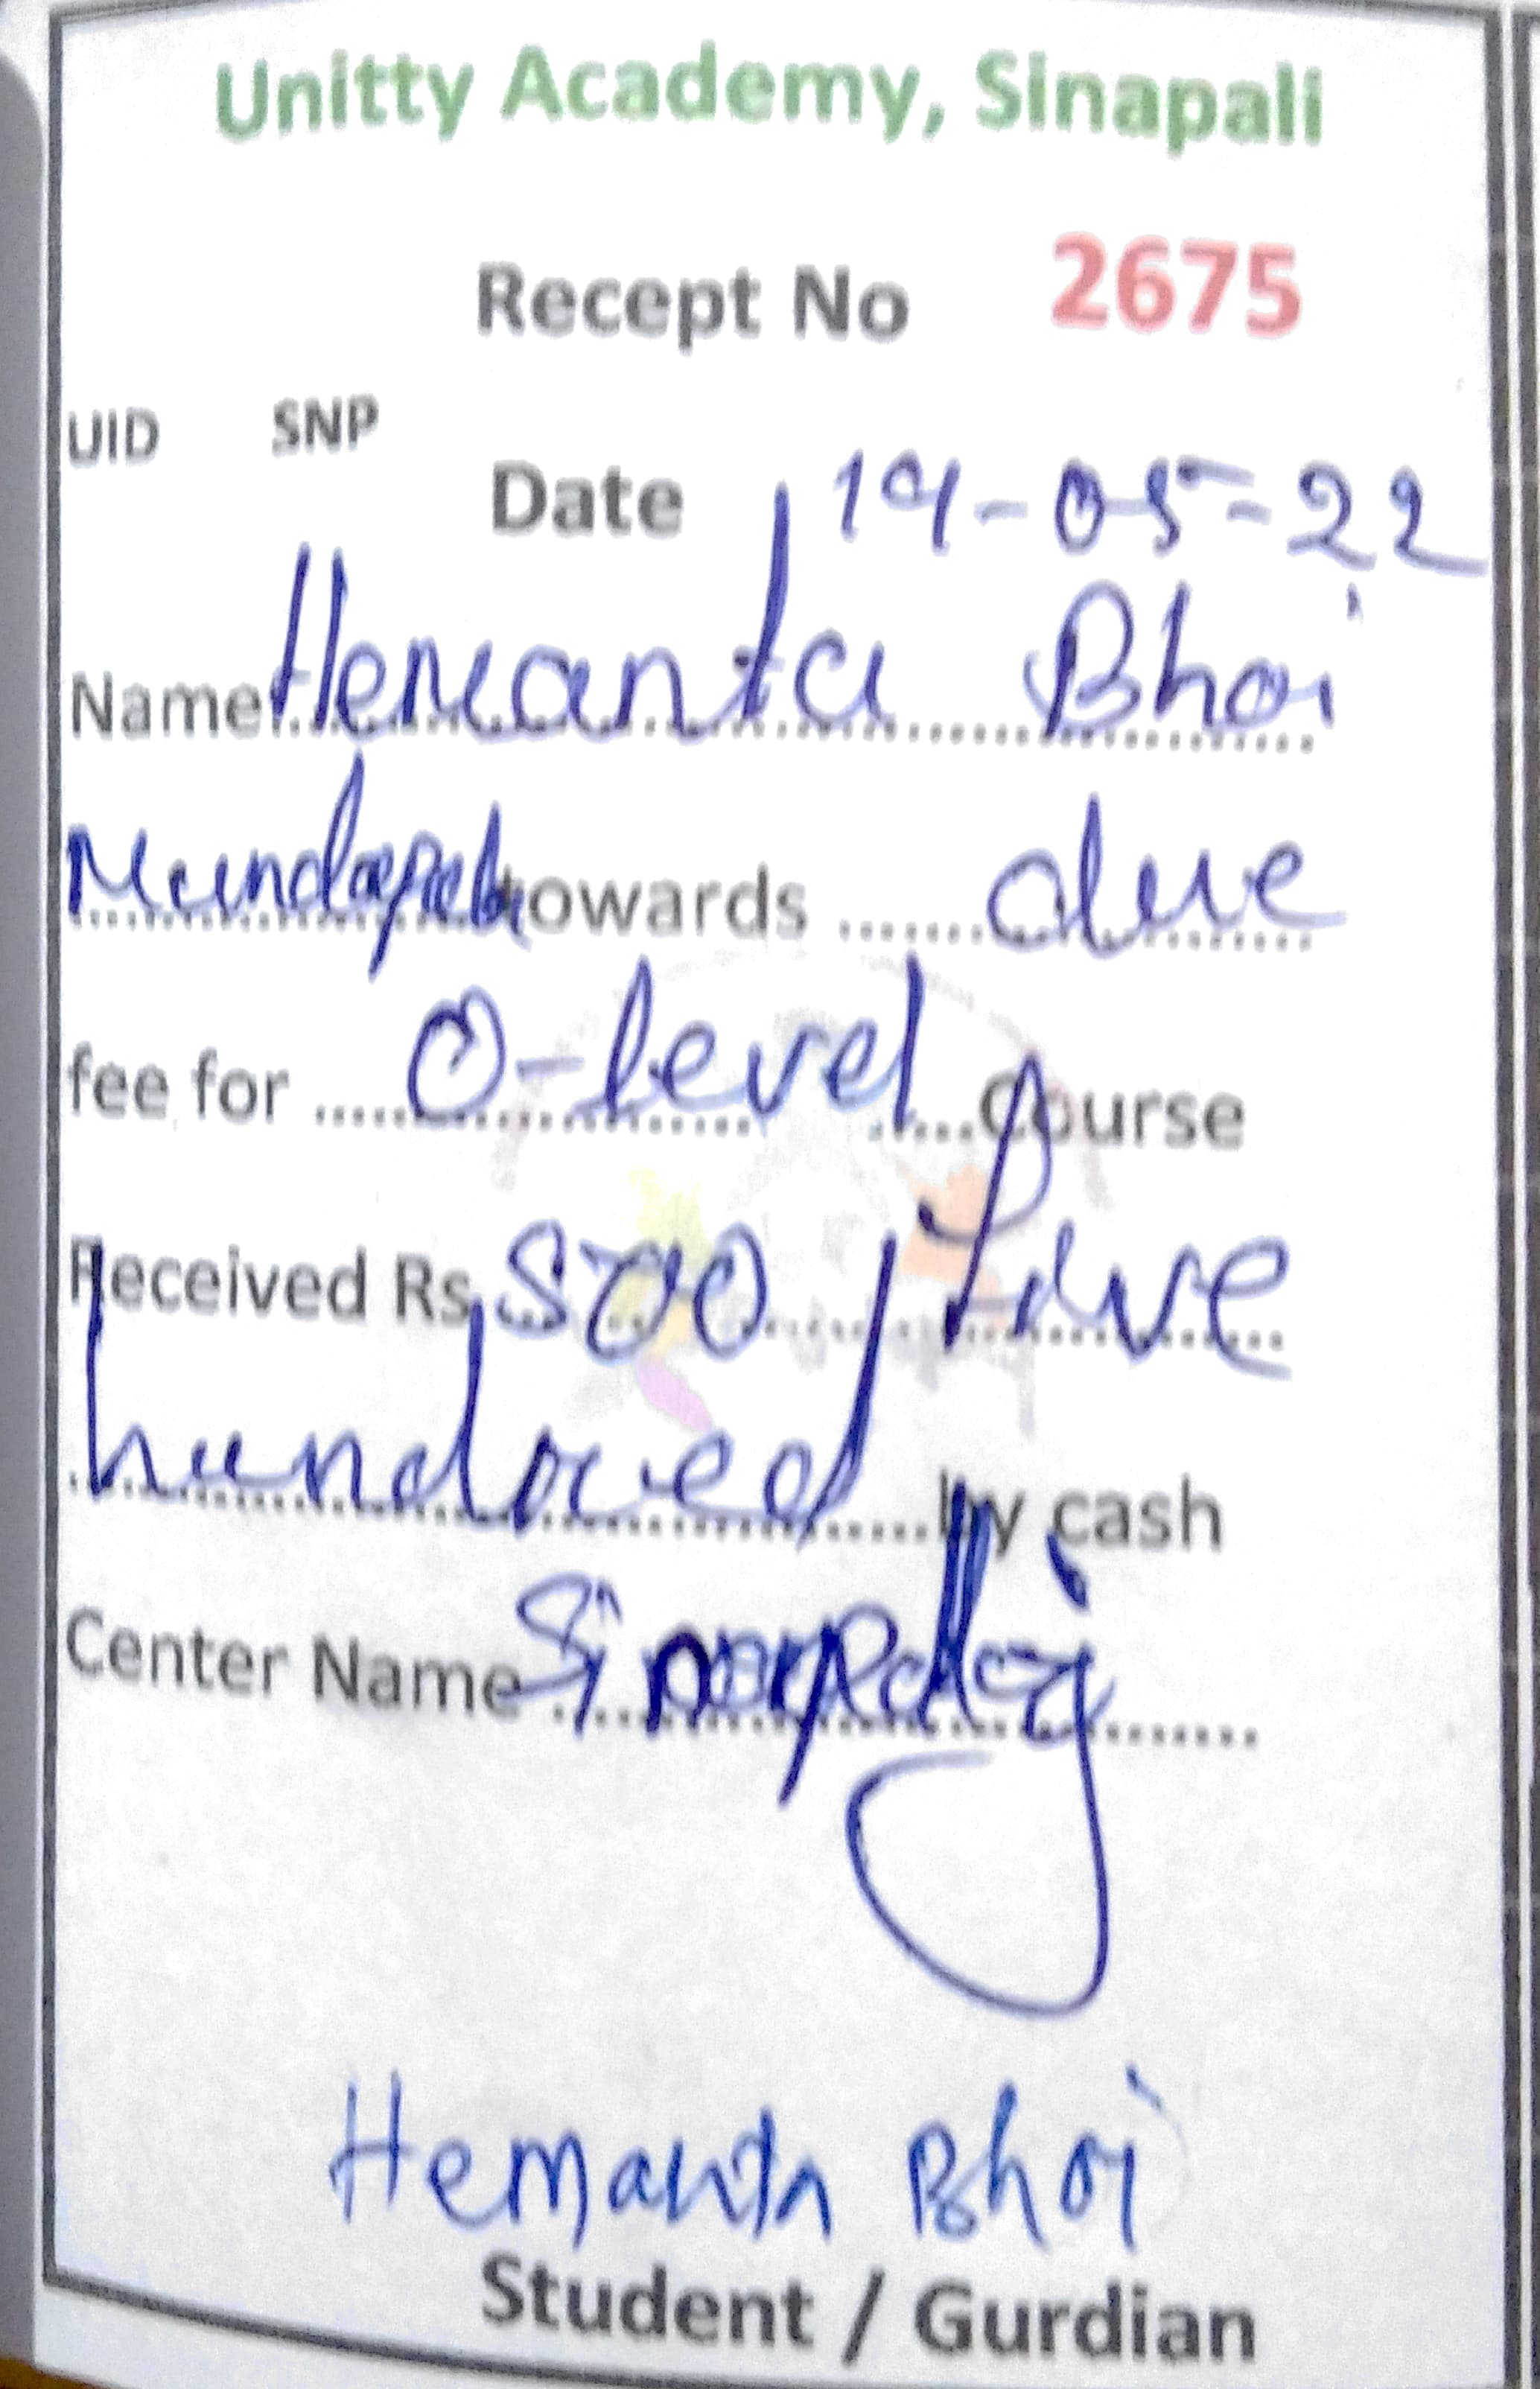 Unitty Academy, Sinapali
Recept No 2675
UID SNP
Date 19-05-22
Name Hemanta Bhoi
towards due
fee for O-level Course
Received Rs 500 / Five
hundred by cash
Center Name Sinapali
Hemanta Bhoi
Student / Gurdian